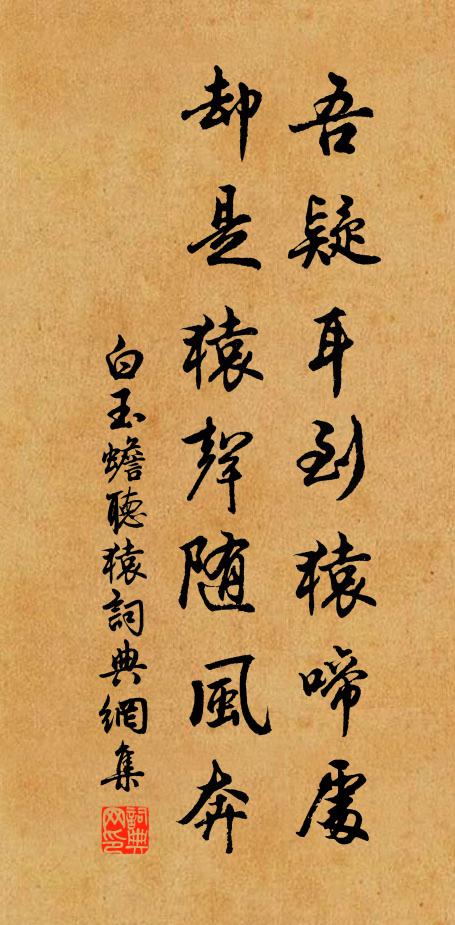 吾疑耳到猿啼處
却是猿聲随風奔
白玉蟾聽猿詞典網集
詞典网印